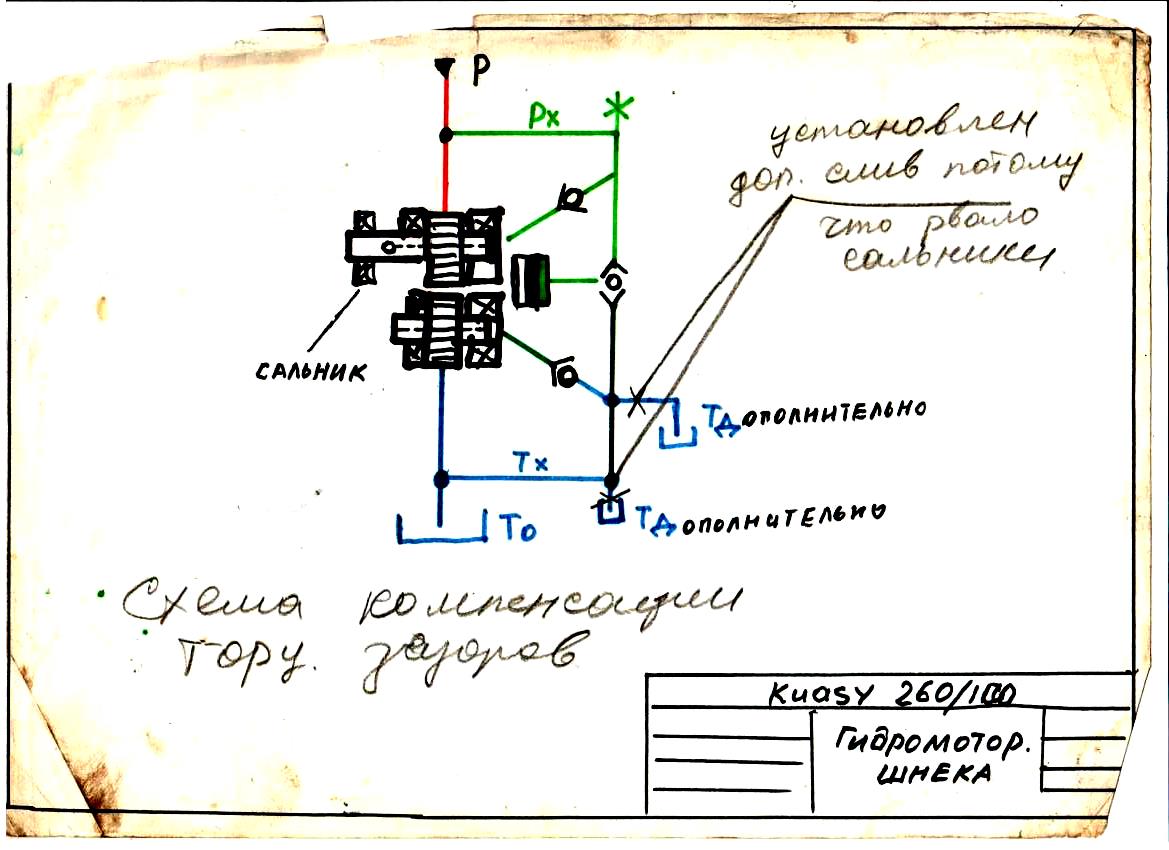 P
Px
установлен
доп. слив потому
что рвало
сальники
САЛЬНИК
ТДОПОЛНИТЕЛЬНО
Tx
То
ТДОПОЛНИТЕЛЬНО
Схема компенсации
торц. зазоров
KuASY 260/100
Гидромотор.
ШНЕКА